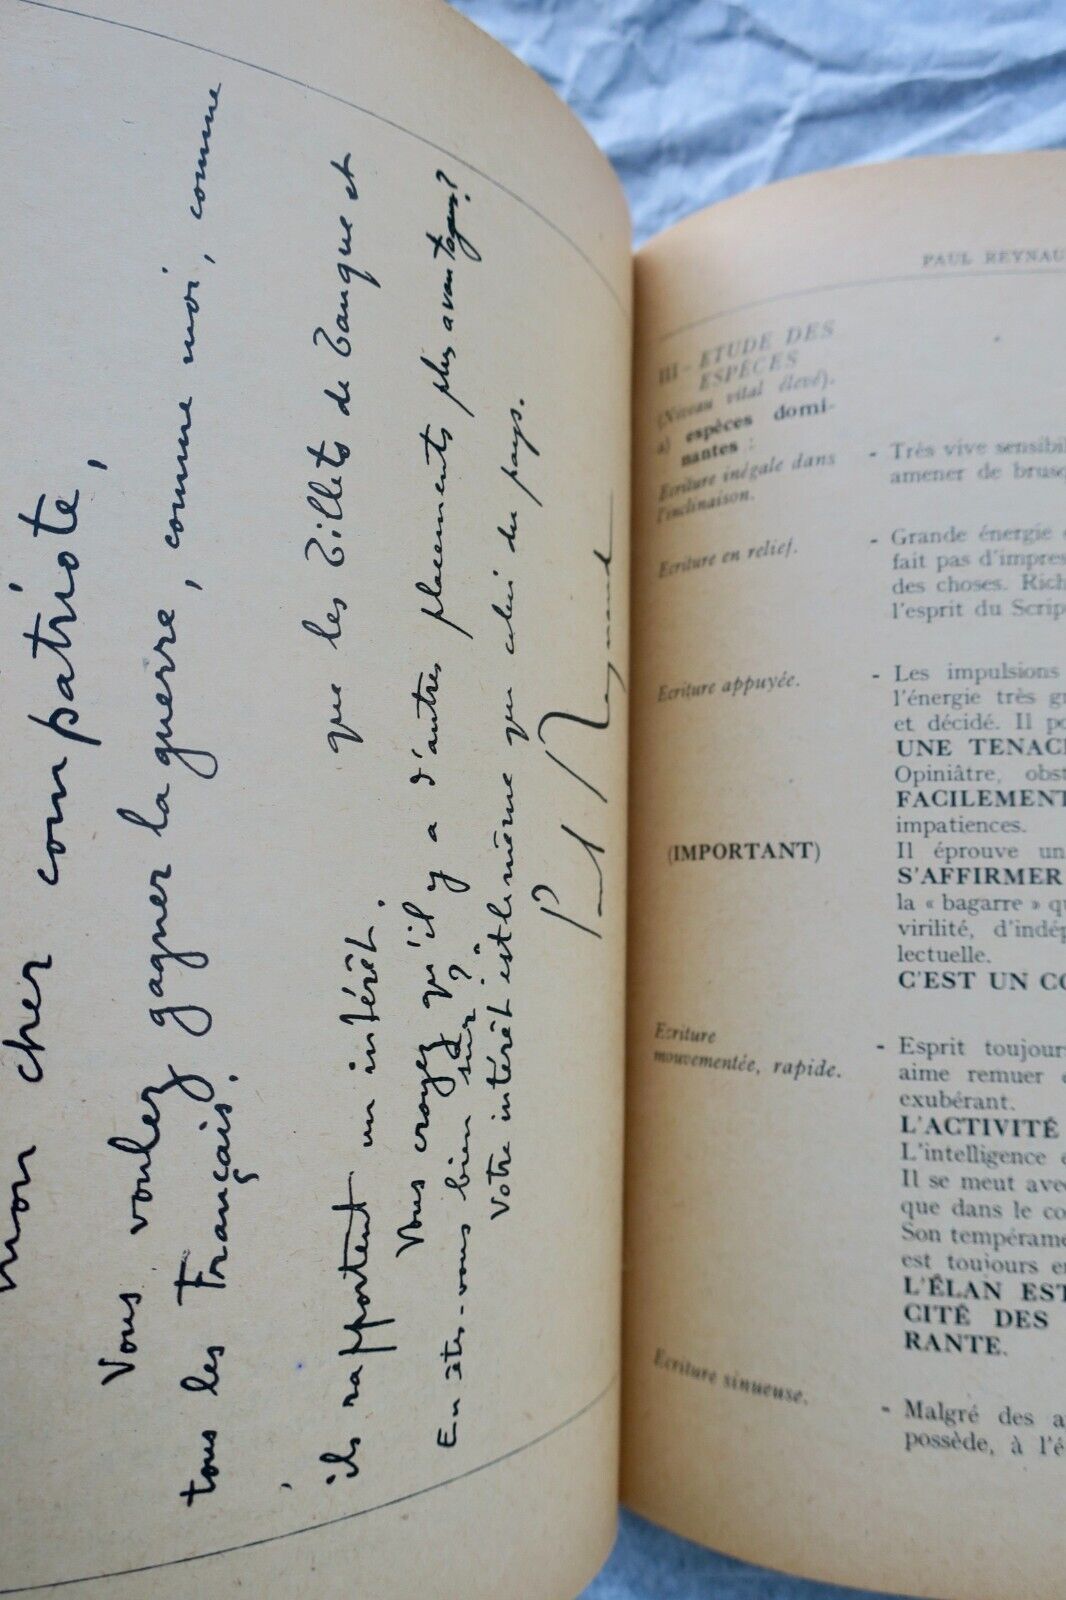 mon cher compatriote,
Vous voulez gagner la guerre, comme moi, comme
tous les Français.
que les Billets de Banque et
ils rapportent un intérêt.
Vous croyez qu'il y a d'autres placements plus avantageux?
En êtes-vous bien sûr?
Votre intérêt est le même que celui du pays.
Paul Reynaud
PAUL REYNAU
III - ETUDE DES
ESPÈCES
(Niveau vital élevé).
a) espèces domi-
nantes :
Ecriture inégale dans
l'inclinaison.
- Très vive sensibil
amener de brusq
Ecriture en relief.
- Grande énergie
fait pas d'impres
des choses. Rich
l'esprit du Scrip
Ecriture appuyée.
- Les impulsions
l'énergie très gr
et décidé. Il po
UNE TENACI
Opiniâtre, obst
FACILEMENT
impatiences.
(IMPORTANT)
Il éprouve un
S'AFFIRMER
la « bagarre » qu
virilité, d'indép
lectuelle.
C'EST UN CO
Ecriture
mouvementée, rapide.
- Esprit toujour
aime remuer e
exubérant.
L'ACTIVITÉ
L'intelligence e
Il se meut avec
que dans le co
Son tempérame
est toujours en
L'ÉLAN EST
CITÉ DES
RANTE.
Ecriture sinueuse.
- Malgré des a
possède, à l'é